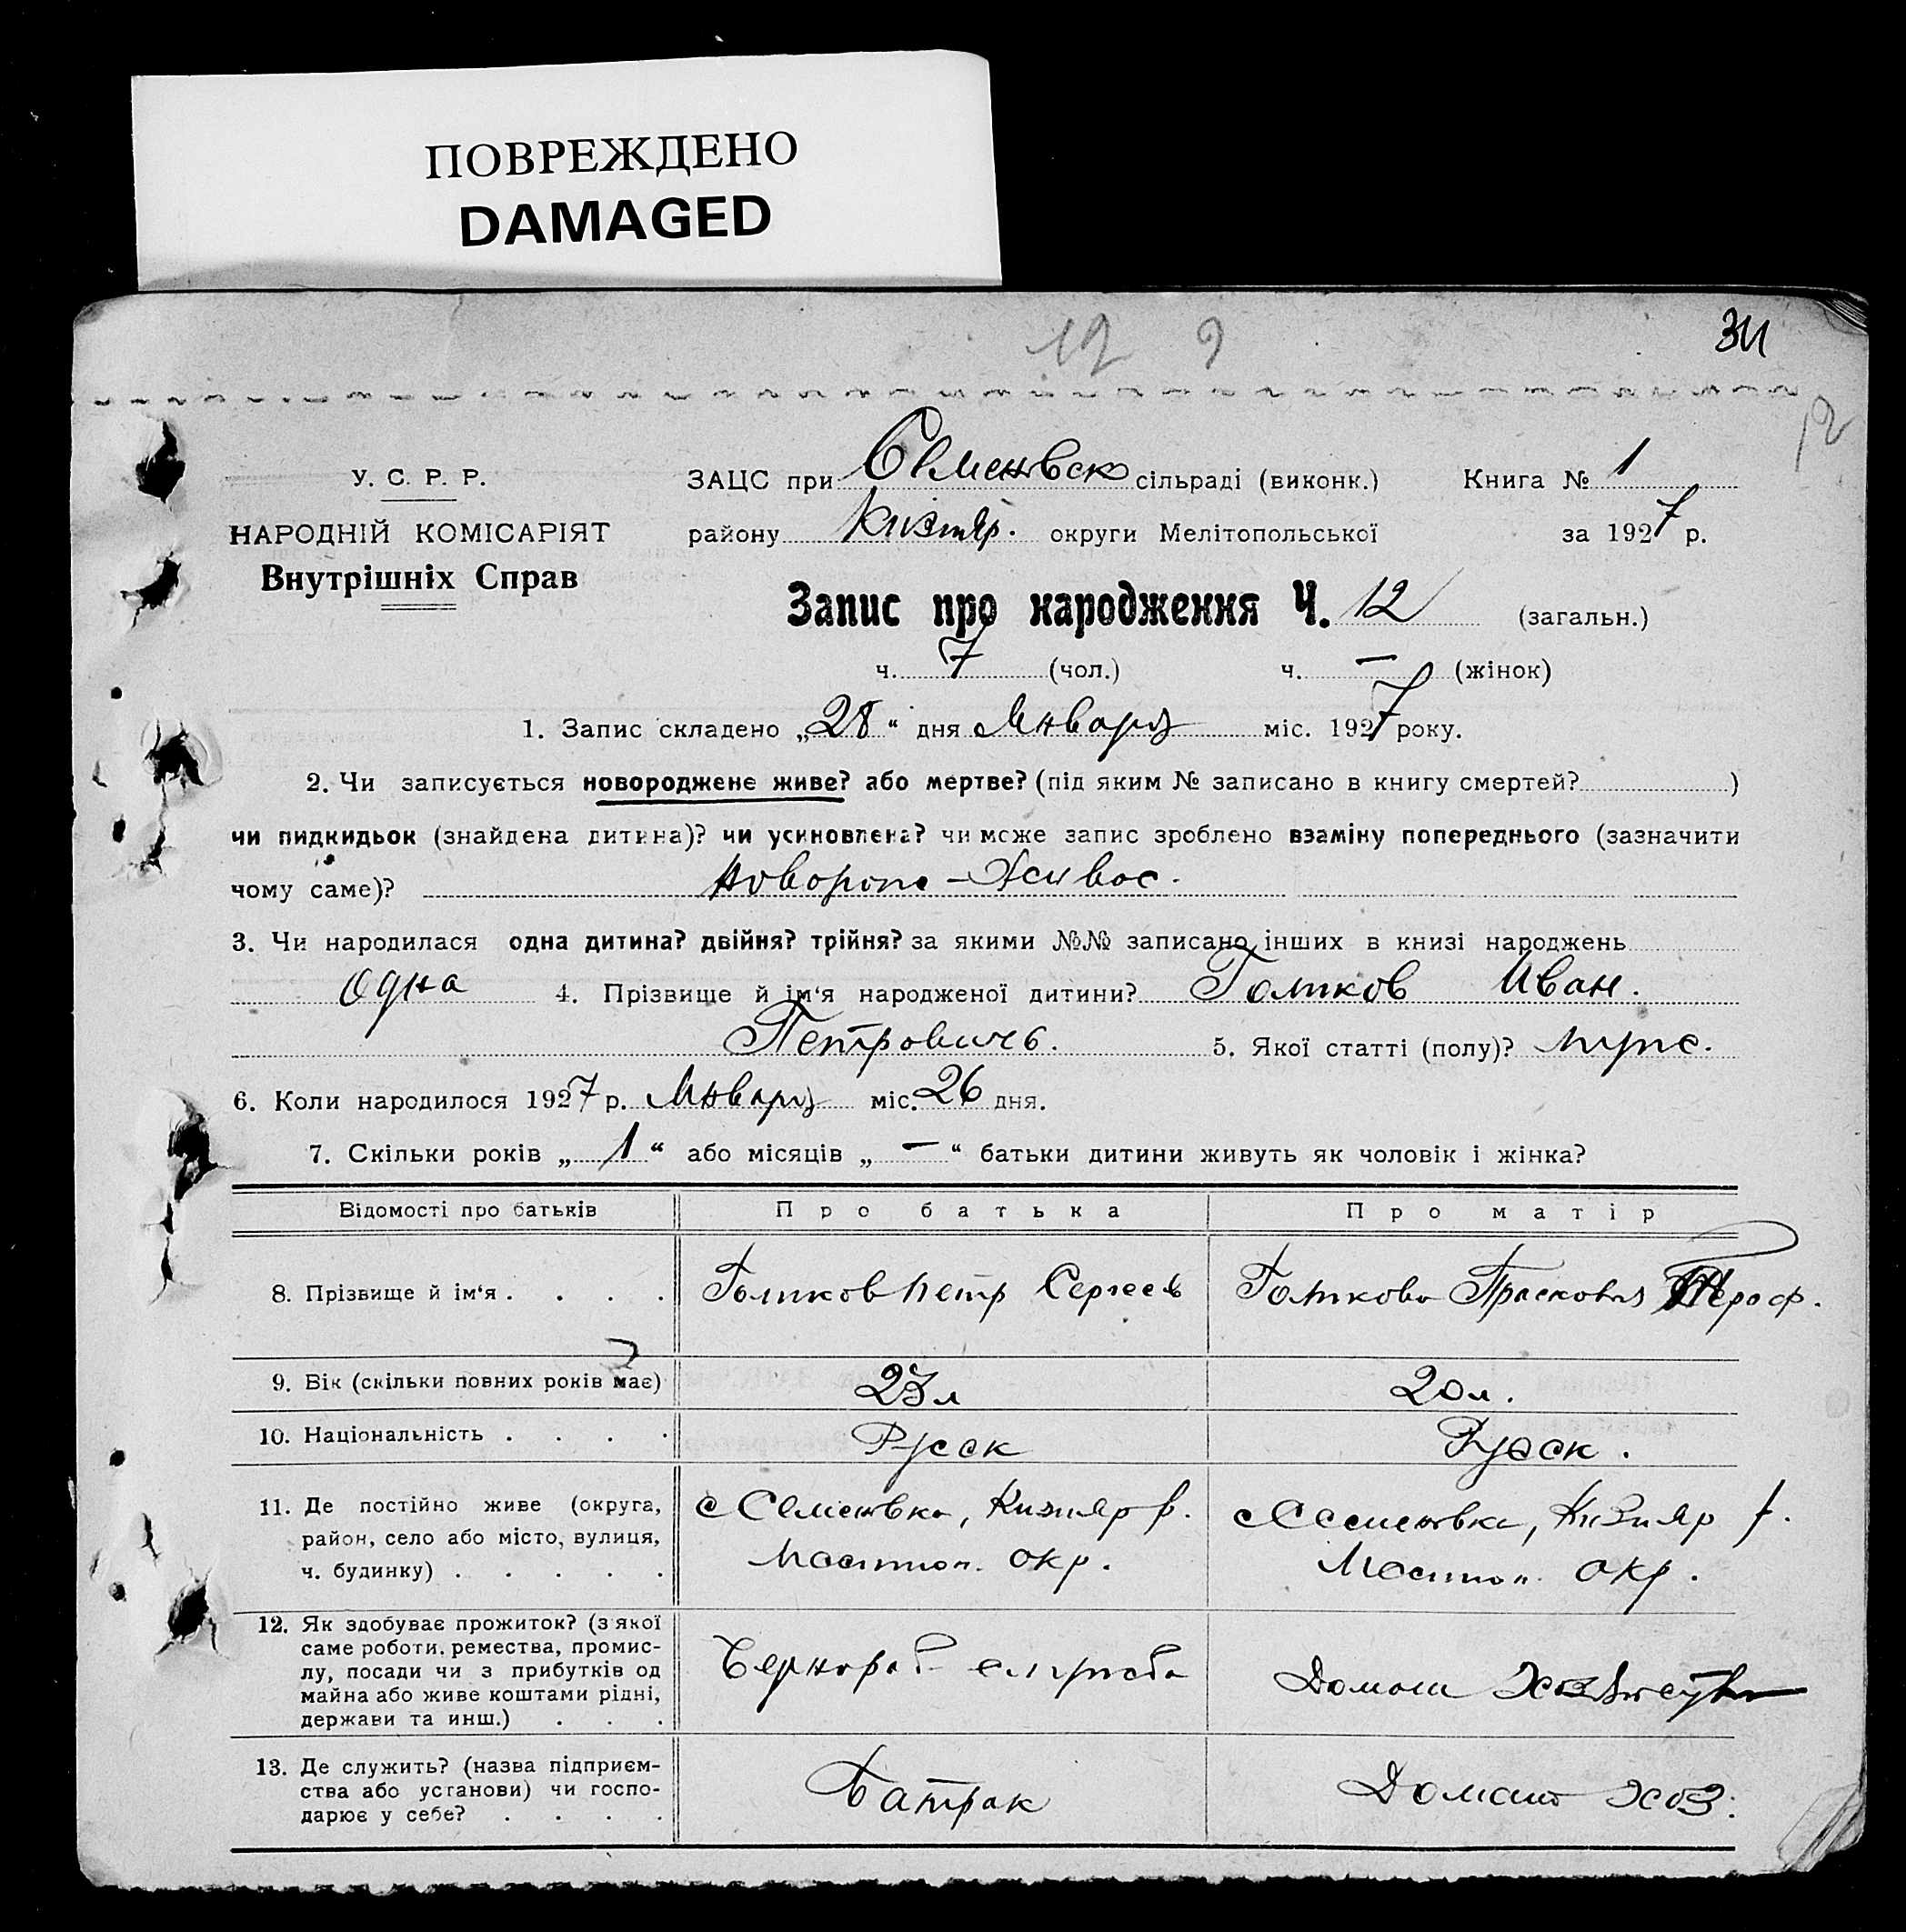 ПОВРЕЖДЕНО
DAMAGED
12 9
12
У. С. Р. Р.
НАРОДНІЙ КОМІСАРІЯТ
Внутрішніх Справ
ЗАЦС при Семеновск сільраді (виконк.) Книга № 1
району Кизияр. округи Мелітопольської за 1927 р.
Запис про народження Ч. 12 (загальн.)
ч. 7 (чол.) ч. — (жінок)
1. Запис складено „28“ дня Января міс. 1927 року.
2. Чи записується новороджене живе? або мертве? (під яким № записано в книгу смертей? )
чи пидкидьок (знайдена дитина)? чи усиновлена? чи може запис зроблено взаміну попереднього (зазначити
чому саме)? новорож – живое.
3. Чи народилася одна дитина? двійня? трійня? за якими №№ записано інших в книзі народжень
Одна 4. Прізвище й ім‘я народженої дитини? Иван.
Петровичъ. 5. Якої статті (полу)? мужс.
6. Коли народилося 1927 р. Января міс. 26 дня.
7. Скільки років „ 1 “ або місяців „ — “ батьки дитини живуть як чоловік і жінка?
Відомості про батьків Про батька Про матір
8. Прізвище й ім‘я . . . . Петр Сергеев Прасковья
9. Вік (скільки повних років має) 23 л 20 л.
10. Національність . . . . Русск Русск.
11. Де постійно живе (округа,
район, село або місто, вулиця,
ч. будинку) . . . . .
с Семеновка, Кизияр р.
Мелитоп. окр.
с Семеновка, Кизияр р.
Мелитоп. окр.
12. Як здобуває прожиток? (з якої
саме роботи, ремества, промис-
лу, посади чи з прибутків од
майна або живе коштами рідні,
держави та инш.) . . .
Чернораб
Домаш Хозяйство
13. Де служить? (назва підприєм-
ства або установи) чи госпо-
дарює у себе? . . . .
Батрак
Домаш хоз.